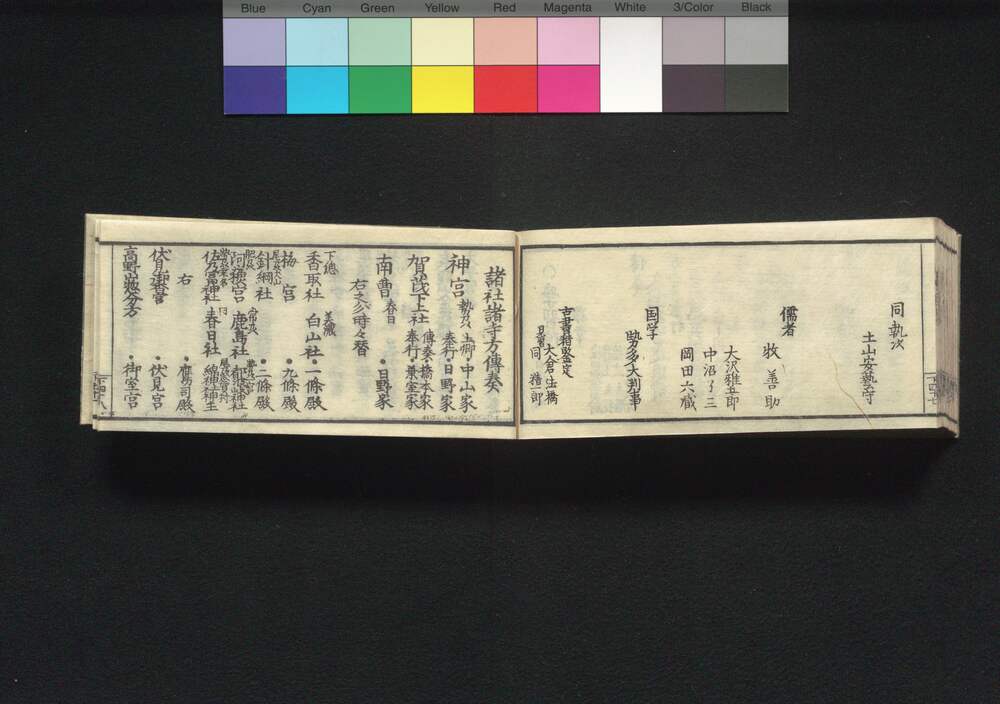 Blue Cyan Green Yellow Red Magenta White 3/Color Black
同執次
土山安藝守
儒者
牧善助
大沢雅五郎
中沼了三
岡田六蔵
国学
勢多大判事
古書畫目利鑑定
大倉 出橋
同
諸社諸寺方傳奏
神宮
上卿・中山家
奉行・日野家
賀茂下上社
傳奏・橋本家
奉行・葉室家
南曹 春日 ・日野家
右之分時々替
下總
香取社
美濃
白山社・一條殿
尾州犬山
梅宮
針綱社
・九條殿
・二條殿
肥後
阿蘇宮
常州
鹿島社
佐冨神社
春日社
右 ・鷹司殿
伏見御香宮 ・伏見宮
高野山學分方 ・御室宮